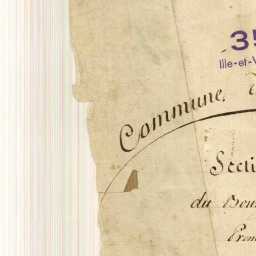 35
Ille-et-V
Commune
Secti
du Bou
Prem